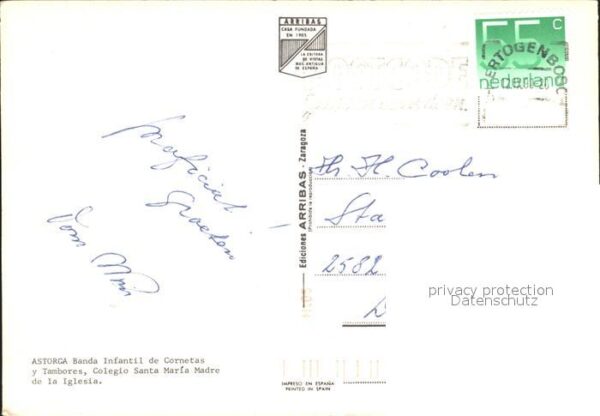 ARRIBAS
CASA FUNDADA
EN 1905
LA EDITORA
DE VISTAS
MAS ANTIGUA
DE ESPAÑA
55 c
nederland
HERTOGENBOSC
Groeten
Ediciones ARRIBAS - Zaragoza
(Prohibida la reproducción)
H. Coolen
Sta
2582
D
privacy protection
Datenschutz
ASTORGA Banda Infantil de Cornetas
y Tambores, Colegio Santa María Madre
de la Iglesia.
IMPRESO EN ESPAÑA
PRINTED IN SPAIN